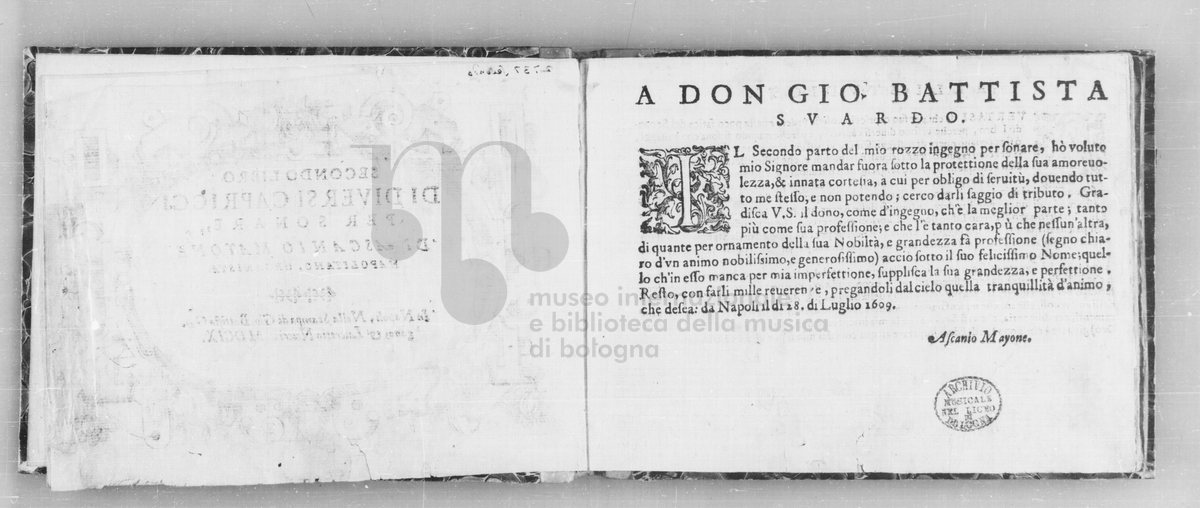 A DON GIO. BATTISTA
SVARDO.
IL Secondo parto del mio rozzo ingegno per sonare, hò voluto
mio Signore mandar fuora sotto la protettione della sua amoreuo-
lezza, & innata cortesia, a cui per obligo di seruitù, douendo tut-
to me stesso, e non potendo; cerco darli saggio di tributo. Gra-
disca V.S. il dono, come d'ingegno, ch'è la meglior parte; tanto
più come sua professione; e che l'è tanto cara, più che nessun'altra,
di quante per ornamento della sua Nobiltà, e grandezza fà professione (segno chia-
ro d'vn animo nobilissimo, e generosissimo) accio sotto il suo felicissimo Nome; quel-
lo ch'in esso manca per mia imperfettione, supplisca la sua grandezza, e perfettione.
Resto, con farli mille reuerenze, pregandoli dal cielo quella tranquillità d'animo,
che desea: da Napoli il dì 28. di Luglio 1609.
Ascanio Mayone.
ARCHIVIO
MUSICALE
DEL LICEO
DI
BOLOGNA
museo internazionale
e biblioteca della musica
di bologna
SECONDO LIBRO
DI DIVERSI CAPRICCI
PER SONARE
DI ASCANIO MAYONE
NAPOLITANO